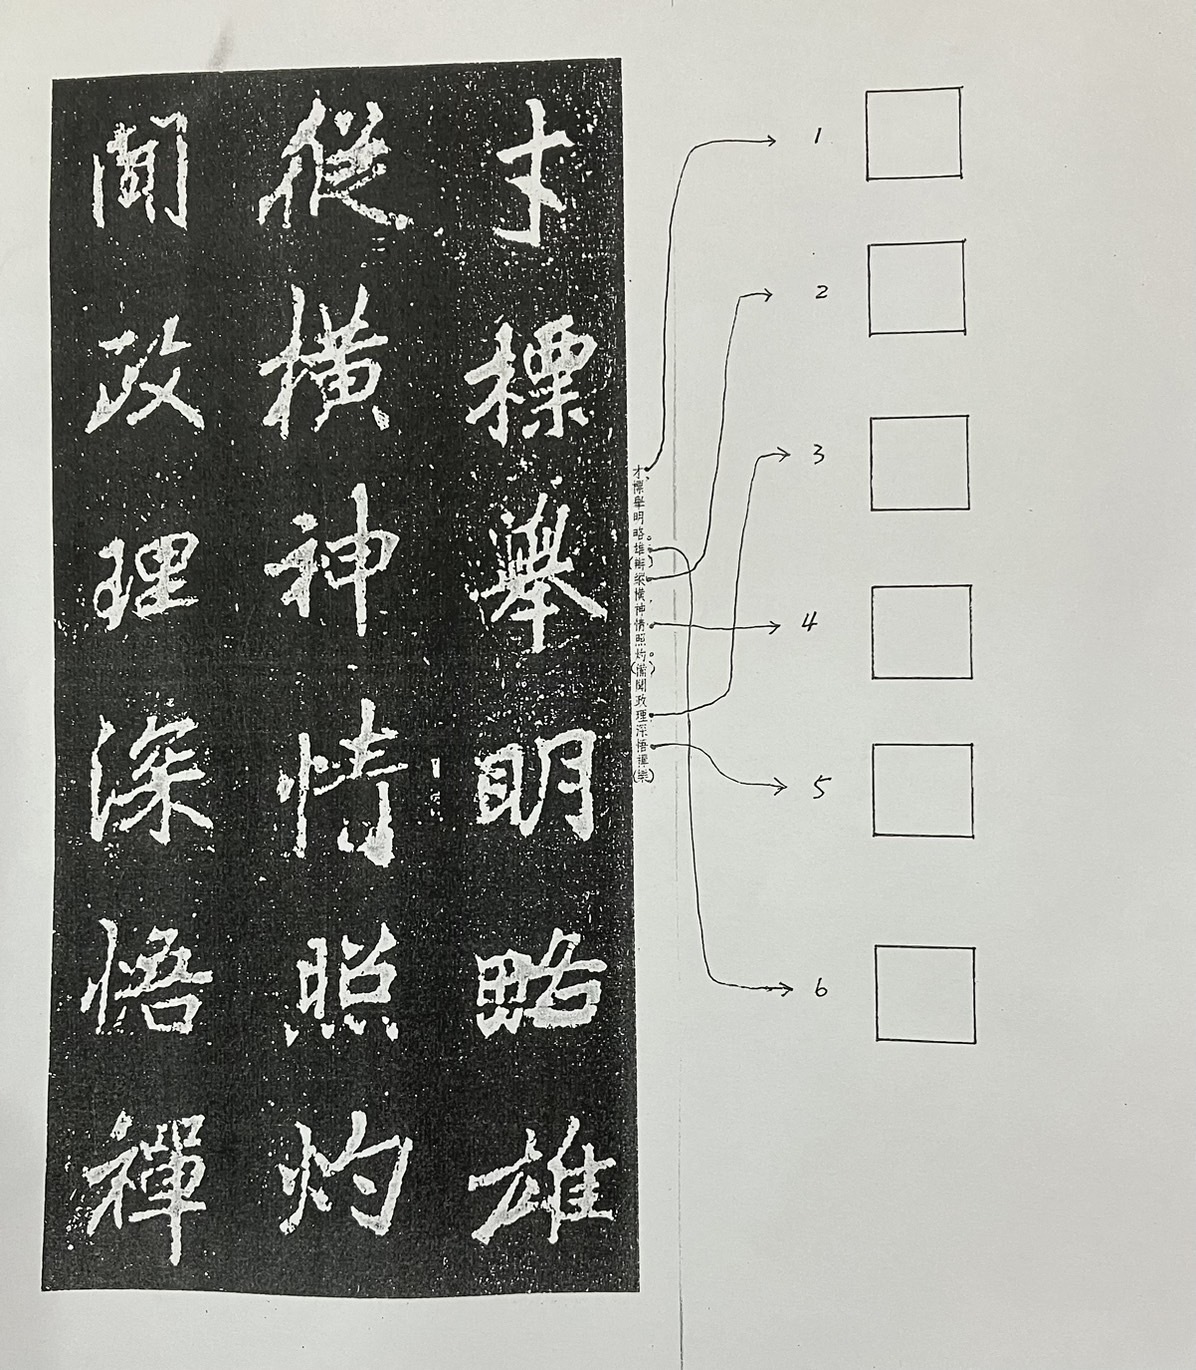 才標舉明略雄
從橫神情照灼
聞政理深悟禪
才標舉明略。雄辯縱橫神情照灼。()聞政理深悟禪(樂)
1
2
3
4
5
6